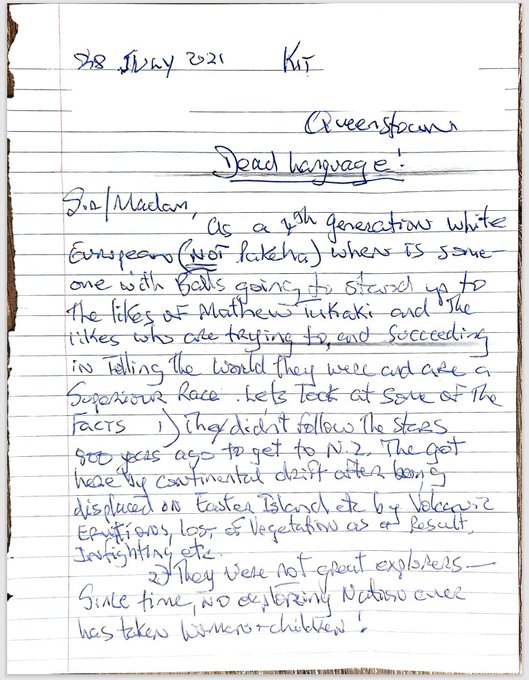 July 2021 Kit
Queenstown
Dead Language!
Sir/Madam,
As a 7th generation white
European (NOT Pakeha) where is some-
one with Balls going to stand up to
The likes of Mathew Tukaki and The
likes who are trying to, and succeeding
in Telling The World They were and are a
Superiour Race. Lets Look at some of The
Facts 1) They didn't follow The Stars
800 years ago to get to N.Z. The got
here by continental drift after being
displaced on Easter Island etc by Volcanic
Eruptions, Loss of Vegetation as a Result,
Infighting etc.
2) They were not great explorers —
Since time, NO exploring Nation ever
has taken women + children!